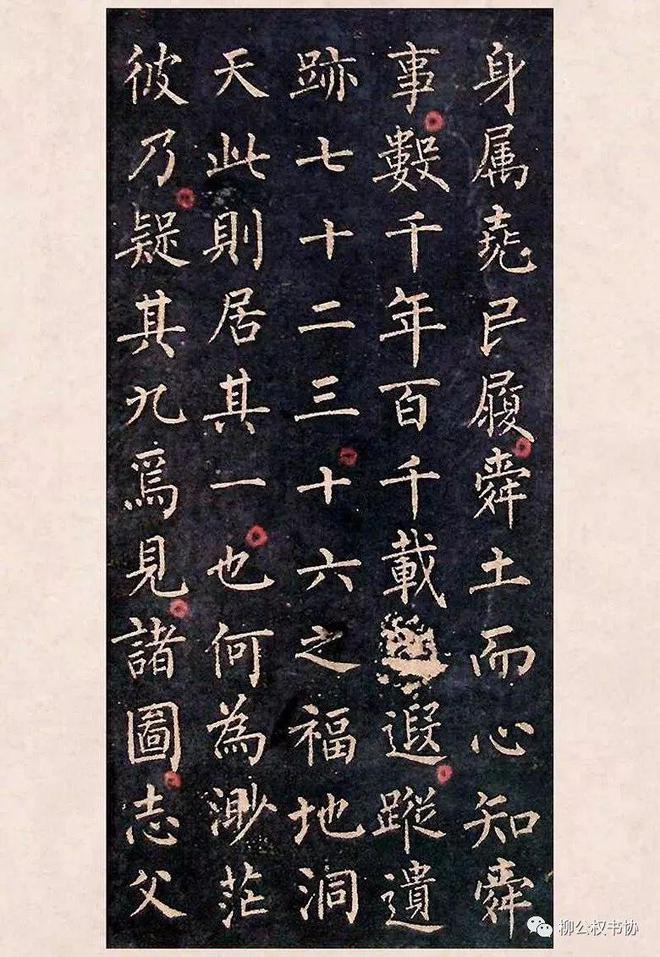 身属堯民履舜土而心知舜
事數千年百千載遐蹤遺
跡七十二三十六之福地洞
天此則居其一也何為渺茫
彼乃疑其九焉見諸圖志父
柳公权书协